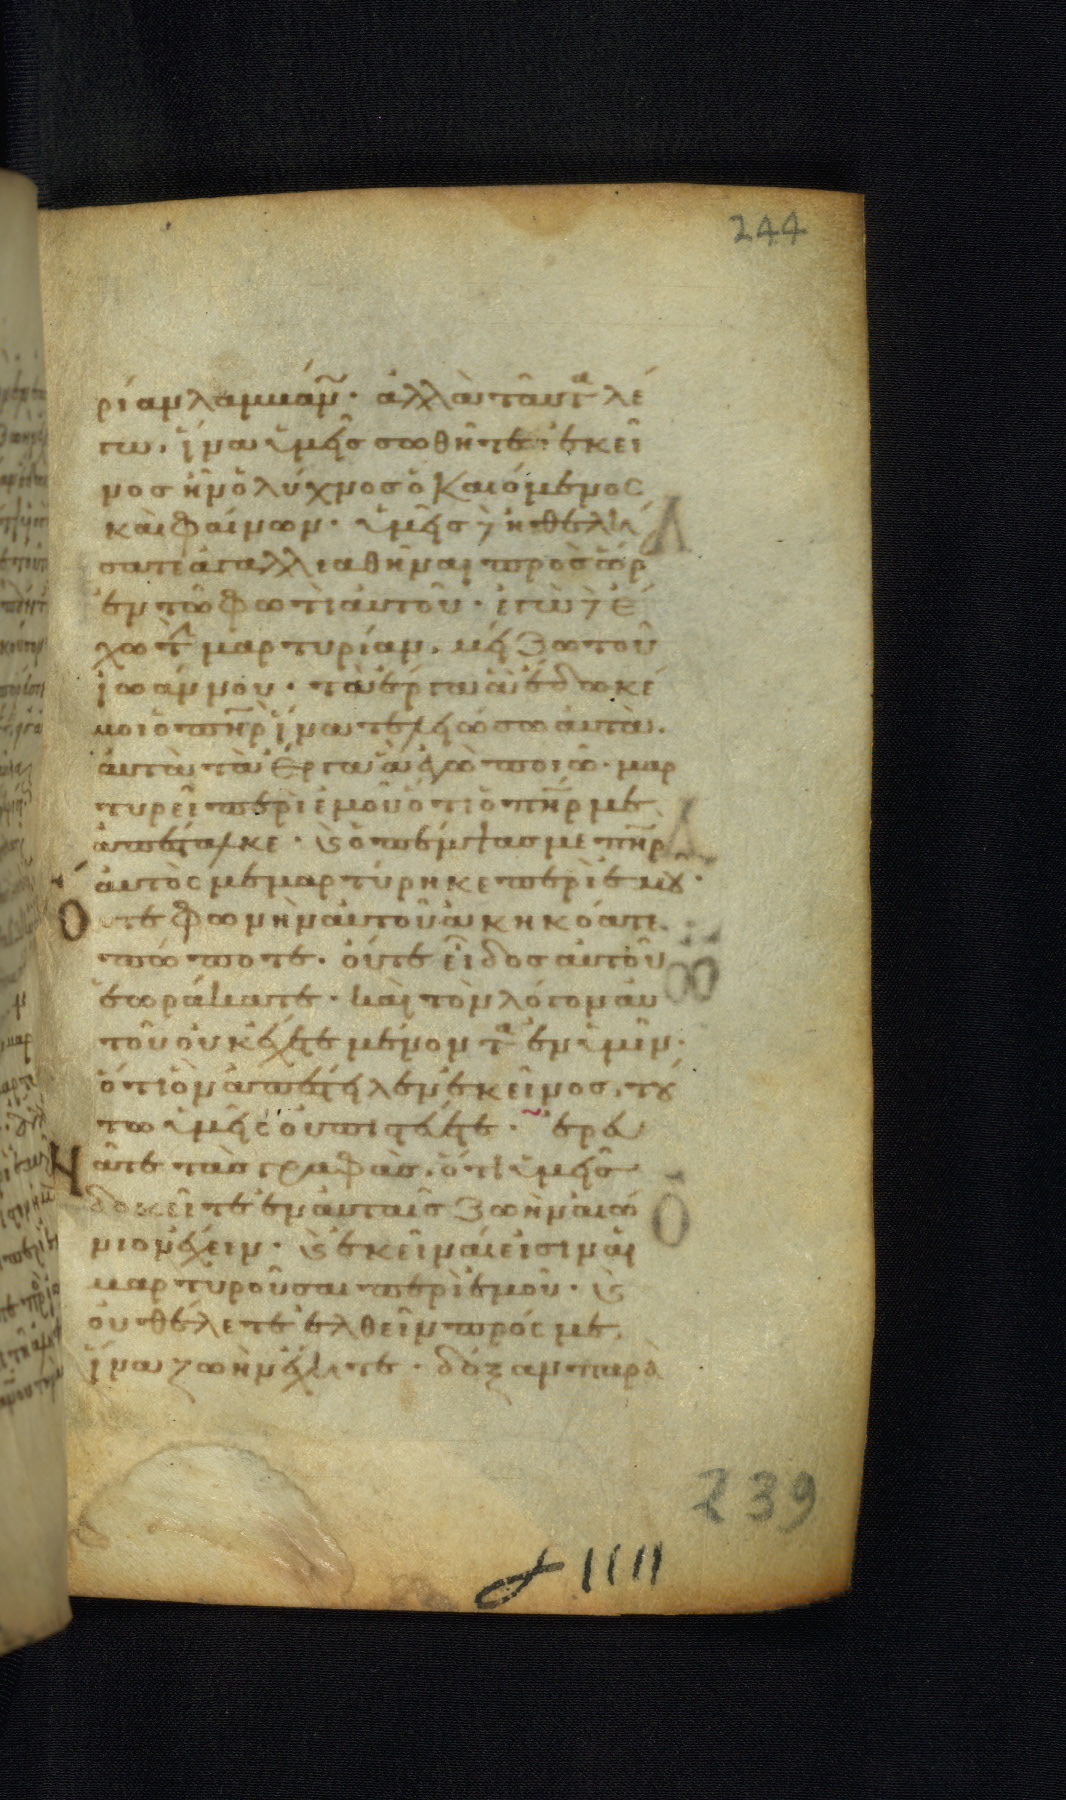 244
ρίαν λαμβάν̃· ἀλλὰ ταῦτ̾ᵃ λέ
γω, ἵνα ὑμεῖς σωθῆτε· ἐκεῖ
νος ἦν ὁ λύχνος ὁ καιόμενος
καὶ φαίνων· ὑμεῖς δὲ ἠθελή
σατε ἀγαλλιαθῆναι πρὸς ὥρ
ἐν τῶ φωτὶ αὐτοῦ· ἐγὼ δὲ ἔ
χω τ̂ μαρτυρίαν, μείζω τοῦ
ἰωάννου· τὰ ἔργα ἃ ἔδωκέ
μοι ὁ π̅η̅ρ ἵνα τελειώσω αὐτὰ.
αὐτὰ τὰ ἔργα ἃ ἐγὼ ποιῶ· μαρ
τυρεῖ περὶ ἐμοῦ ὅτι ὁ π̅η̅ρ με
ἀπέσταλκε· ϗ ὁ πέμψας με π̅η̅ρ
αὐτὸς μεμαρτύρηκε περὶ ἐμου·
Οὔτε φωνὴν αὐτοῦ ἀκηκόατε
πώποτε· οὔτε εἶδος αὐτοῦ
ἑωράκατε· καὶ τὸν λόγον αὐ
τοῦ οὐκ ἔχετε μένοντᵃ ἐν ὑμῖν·
ὅτι ὃν ἀπέστειλεν ἐκεῖνος, τού
τω ὑμεῖς οὐ πιστεύετε· ἐρευ
νᾶτε τὰς γραφὰς, ὅτι ὑμεῖς
δοκεῖτε ἐν αὐταῖς ζωὴν αἰώ
νιον ἔχειν· ϗ ἐκεῖναί εἰσιν αἱ
μαρτυροῦσαι περὶ ἐμοῦ· ϗ
οὐ θέλετε ἐλθεῖν πρός με,
ἵνα ζωὴν ἔχητε· δόξαν παρὰ
239